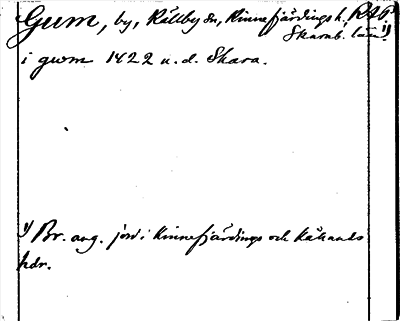 Gum, by, Källby sn, Kinnefjärdings h, RAP 1)
Skarab. län.
i gwm 1422 u. d. Skara.
1) Br. ang. jord i Kinnefjärdings och Kållands
hdr.